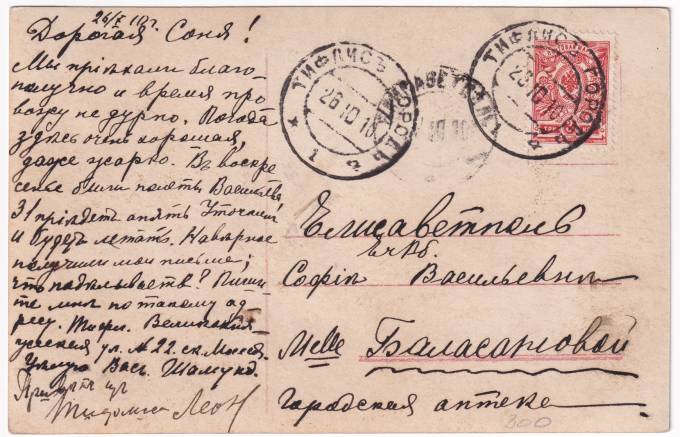 26/X 10 г.
Дорогая Соня!
Мы пріѣхали благо
получно и время про
вожу не дурно. Погода
здѣсь очень хорошая,
даже жарко. Въ воскре
сенье были полетъ Васильева
31 пріѣдетъ опять Уточкинъ
и будетъ летать. Навѣрное
получили мои письма;
что подѣлываете? Пиши
те мнѣ по такому ад
ресу. Тифл. Великокня
жеская ул. № 22. кв.
Вас.
Леон
ТИФЛИСЪ ГОРОДЪ
26 10 10
* 1 *
ТИФЛИСЪ ГОРОДЪ
26 10 10
Елисаветполь
Софіи Васильевнѣ
Mlle Баласановой
Городская аптека
300